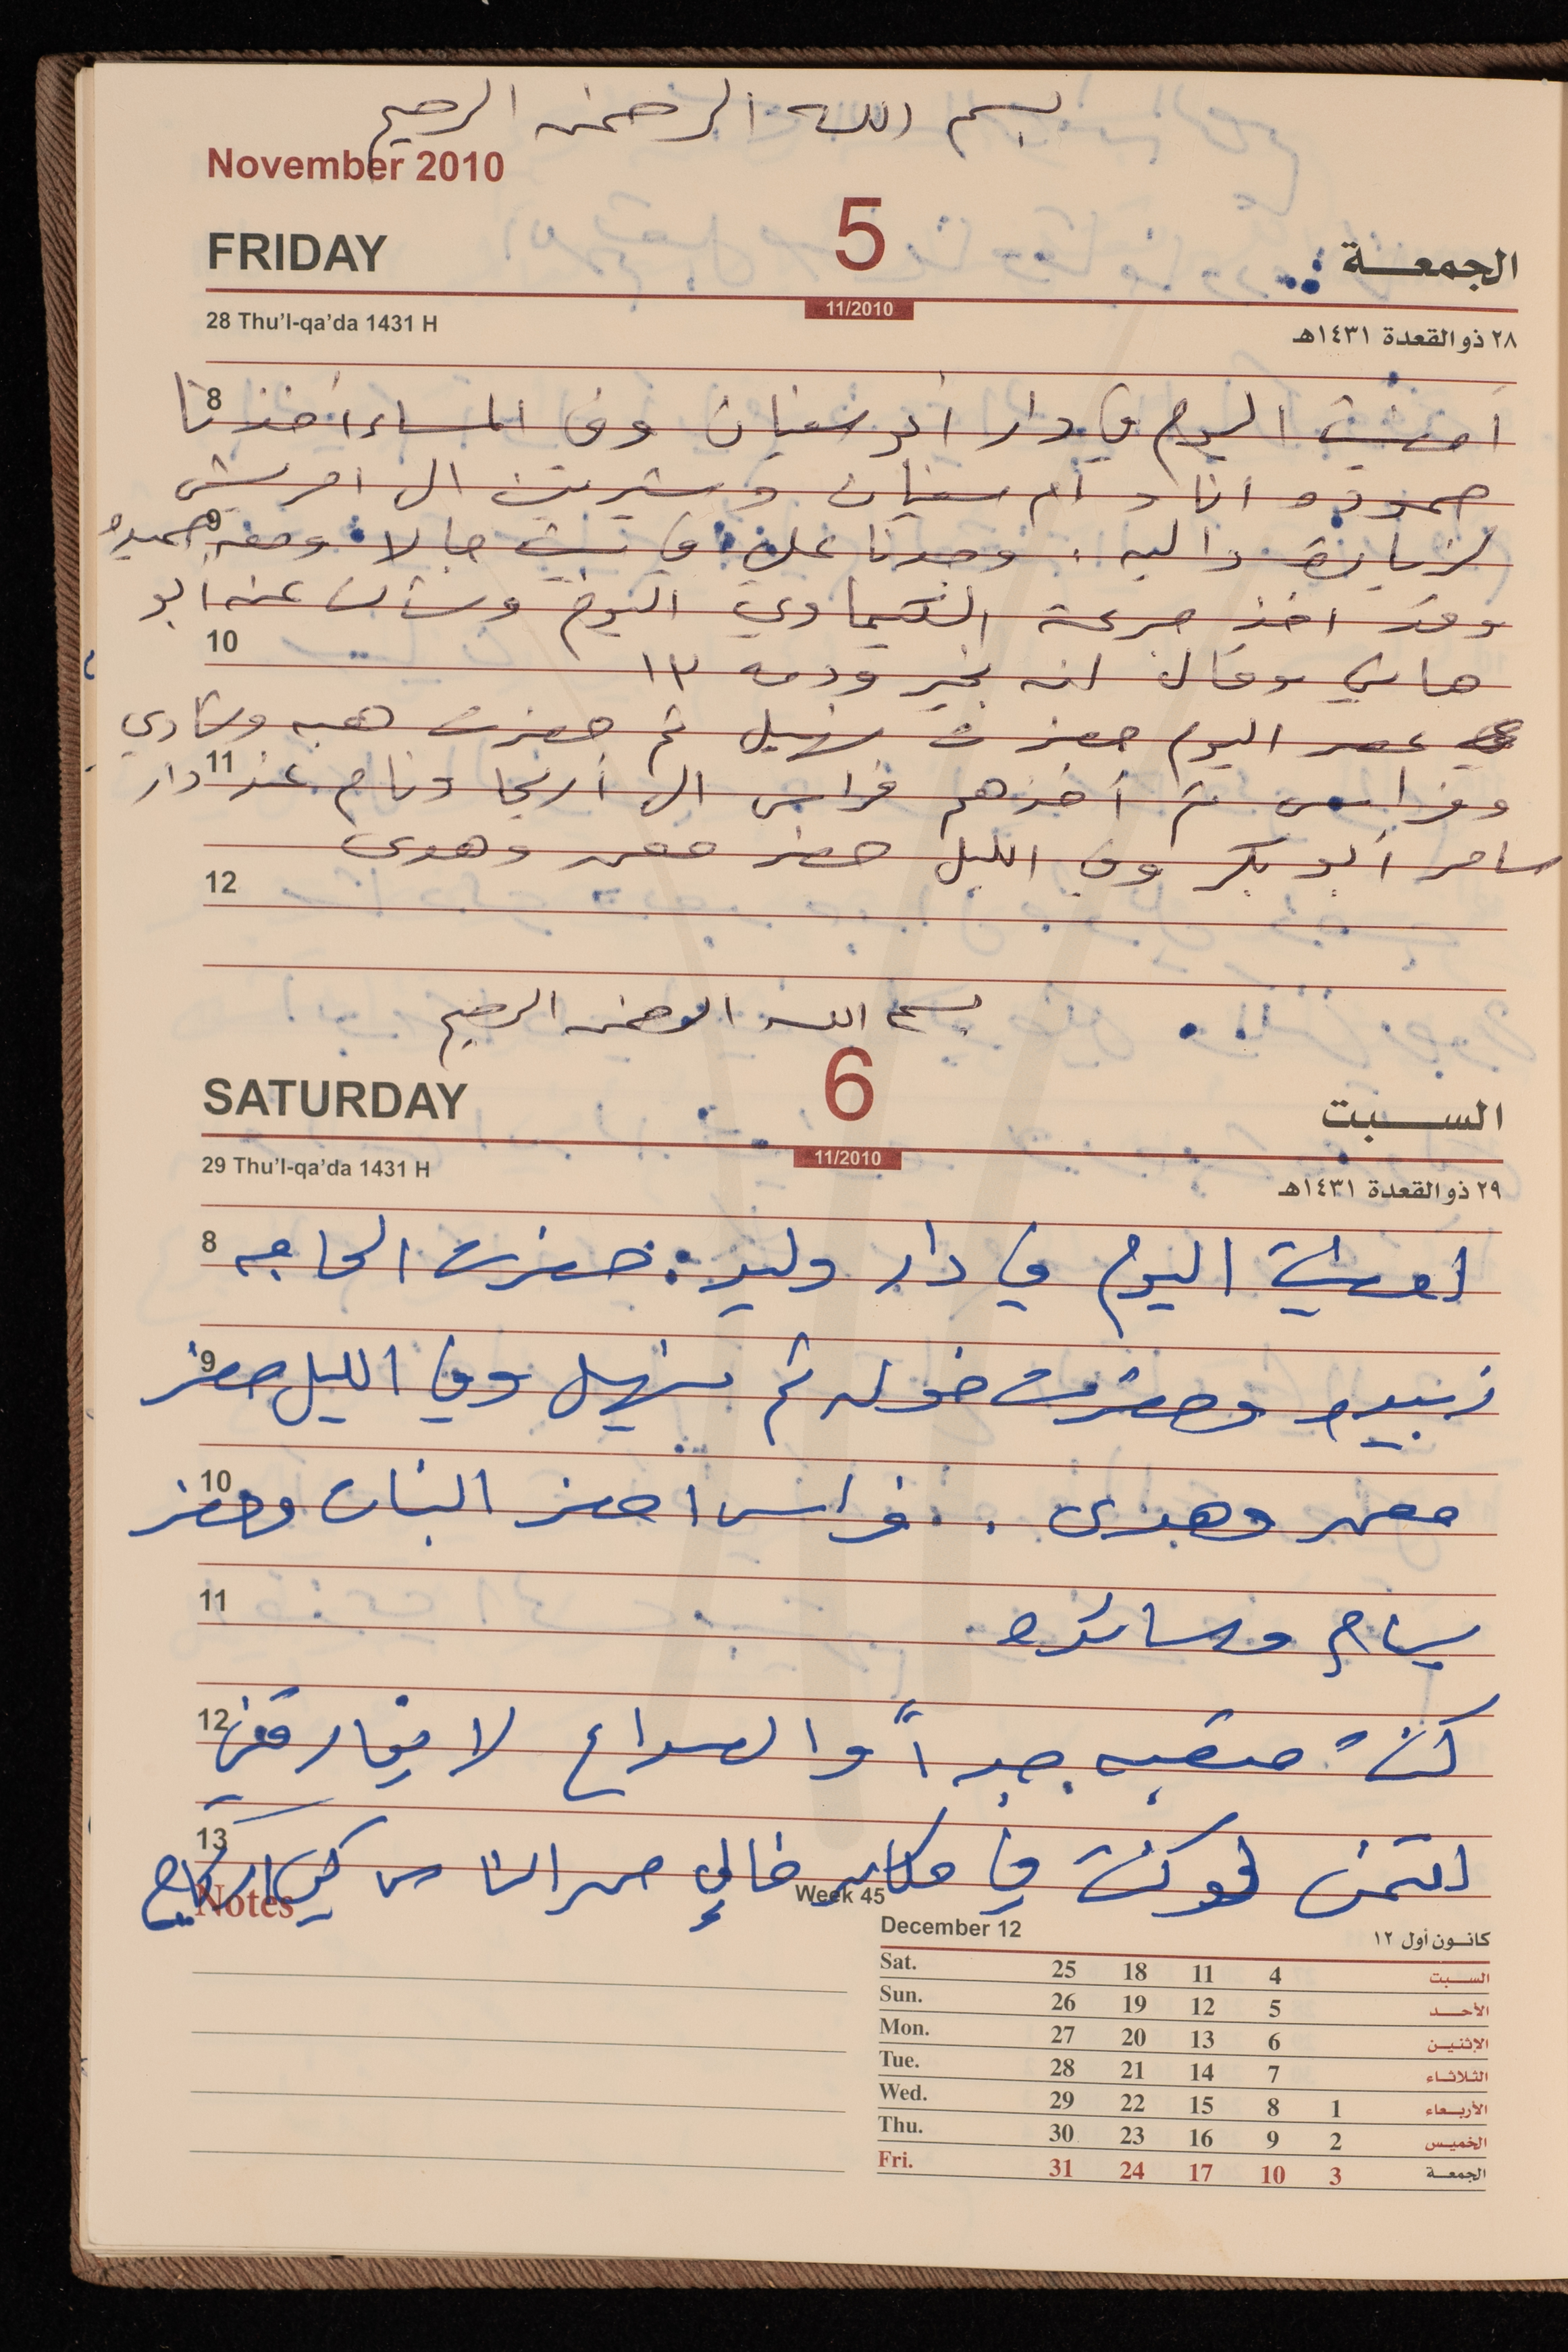 بسم الله الرحمن الرحيم
November 2010
FRIDAY 5 الجمعة
11/2010
28 Thu'l-qa'da 1431 H ٢٨ ذو القعدة ١٤٣١هـ
8 أمضيت اليوم في دار أبو سفيان وفي المساء أخذنا
حموده انا و أم سفيان وشيرين الى امريش
9 لزيارة داليه . وجدنا علي في بيت جالا ومعه حميده
وقد اخذ جرعة الكيماوي اليوم وسألت عنه أبو
10 هاني وقال انه بخير ودمه ١٣
عصر اليوم حضرت سهيل ثم حضرت هبه وشادي
11 وفراس ثم أخذهم فراس الى أريحا ونام عند دار
سامر أبو بكر وفي الليل حضر معمر وهدى
12
بسم الله الرحمن الرحيم
SATURDAY 6 السبت
11/2010
29 Thu'l-qa'da 1431 H ٢٩ ذو القعدة ١٤٣١هـ
8 امضيت اليوم في دار وليد . حضرت الحاجه
9 زبيده وحضرت خوله ثم سهيل وفي الليل حضر
10 معمر وهدى . . فراس احضر البنات وحضر
11 بسام وسائده
12 كنت متعبه جداً والصداع لا يفارقني
13 اتمنى لو كنت في مكان خالي من الناس كي ارتاح
Notes
Week 45
December 12 كانون أول ١٢
Sat. 25 18 11 4 السبت
Sun. 26 19 12 5 الأحد
Mon. 27 20 13 6 الإثنين
Tue. 28 21 14 7 الثلاثاء
Wed. 29 22 15 8 1 الأربعاء
Thu. 30 23 16 9 2 الخميس
Fri. 31 24 17 10 3 الجمعة